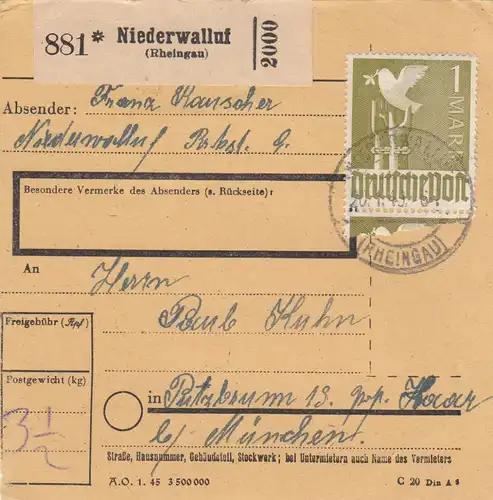 881* Niederwalluf
(Rheingau)
2000
1 MARK
Deutsche Post
(RHEINGAU)
Absender: Franz Kauscher
Niederwalluf
Besondere Vermerke des Absenders (s. Rückseite):
An
Herrn
Kuhn
Freigebühr (Rpf)
Postgewicht (kg)
3 1/2
in Putzbrunn 13. Haar
b/ München.
Straße, Hausnummer, Gebäudeteil, Stockwerk; bei Untermietern auch Name des Vermieters
A.O. 1. 45 3 500 000
C 20 Din A 6